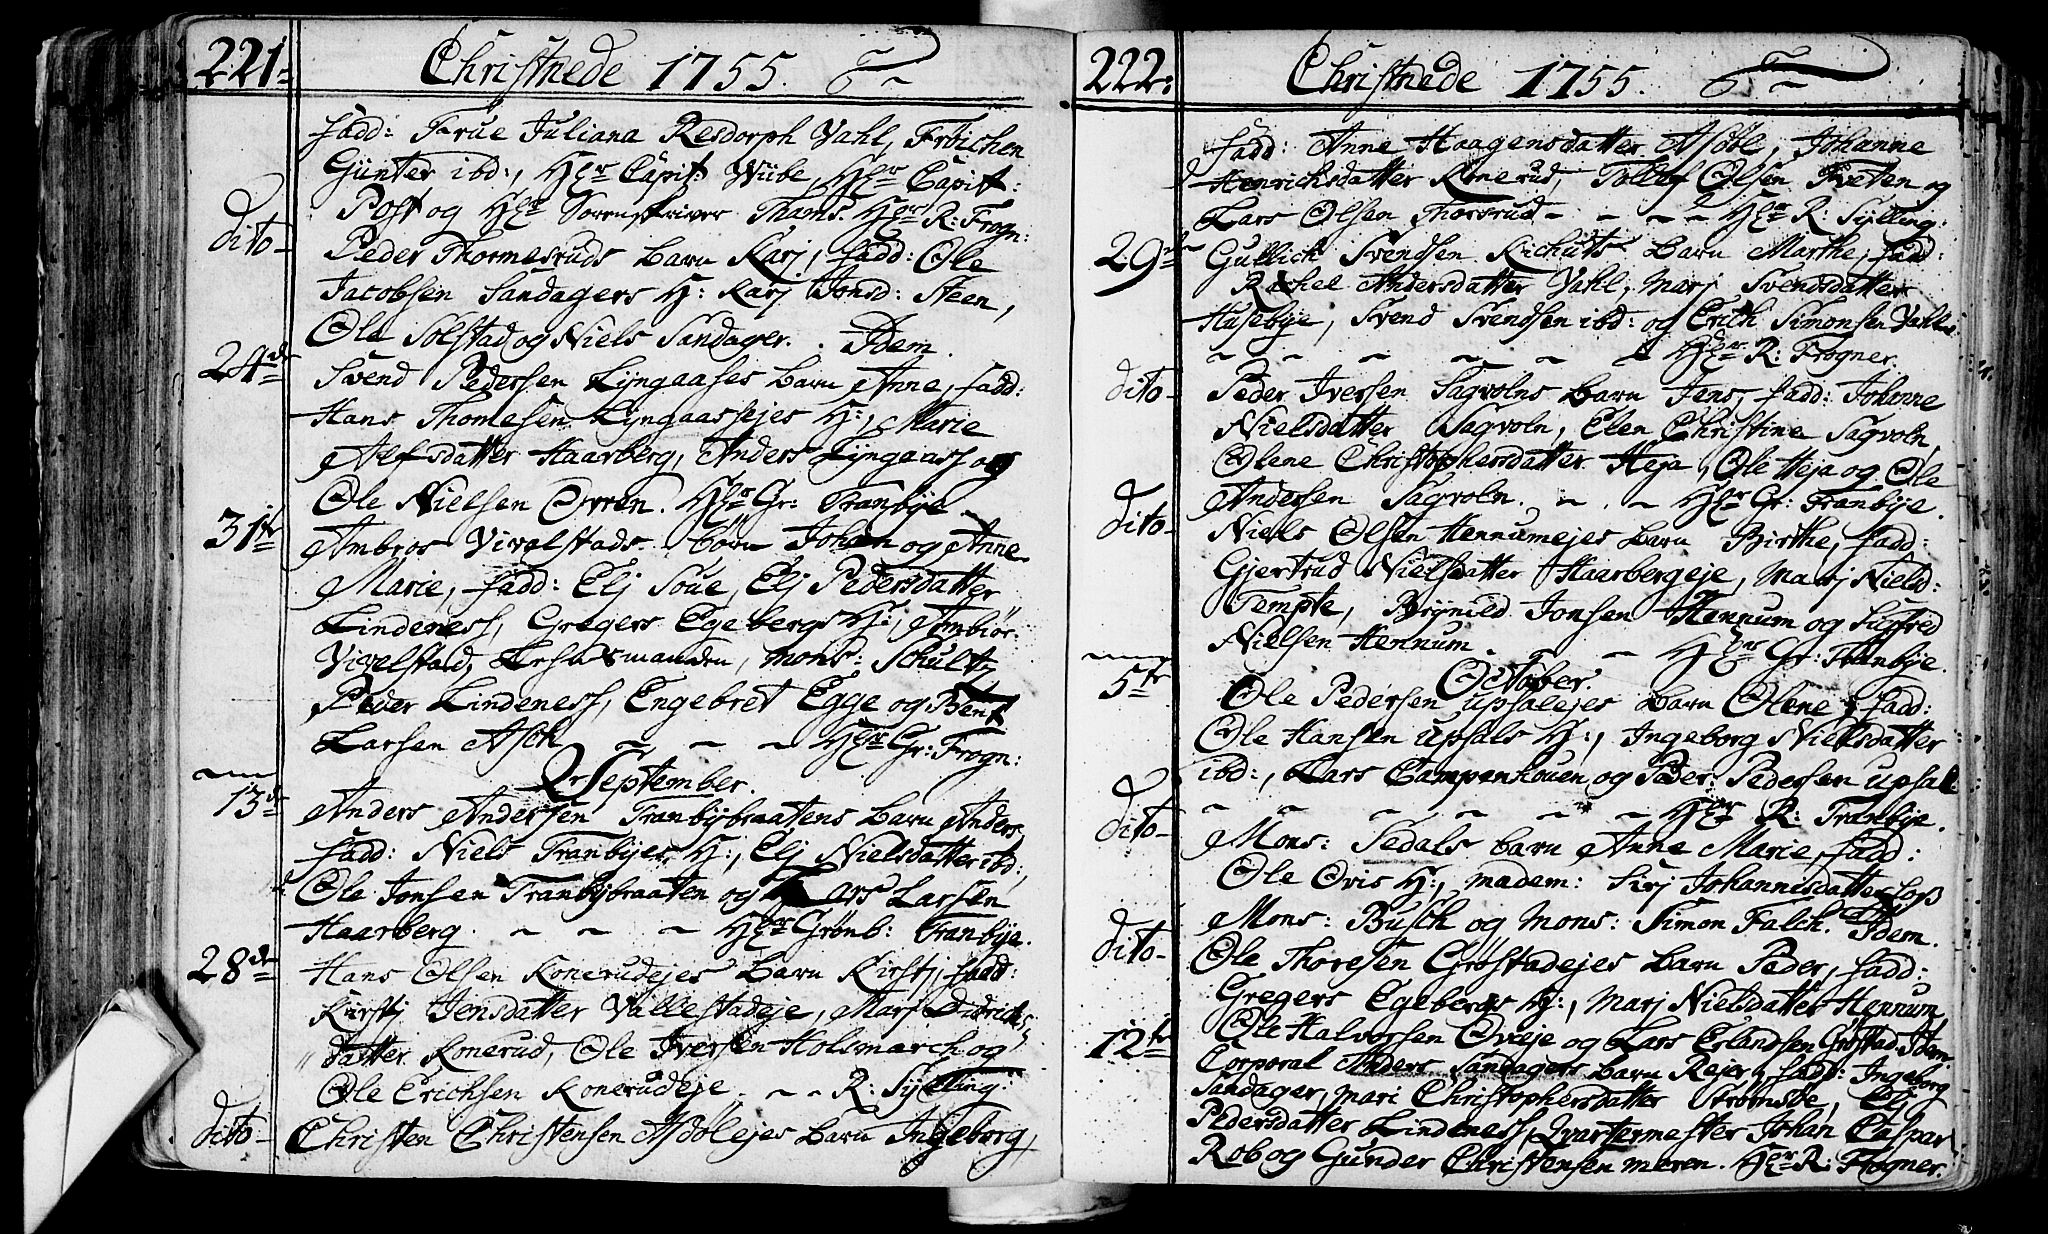 221.
Christnede 1755.
fadd: Frue Juliana Resdorph Vahl, Frøichen
Günter ibd:, Hr Capit: Wübe, Hr Capit:
Post og Hr Sorenskriver Thams. Hr R: Frogn:
dito- Peder Thormesruds barn Karj, fadd: Ole
Jacobsen Sandagers H: Karj Jonsd: Steen,
Ole Solstad og Niels Sandager. Idem.
24de Svend Pedersen Lÿngaases barn Anne, fadd:
Hans Thomesen Lÿngaassejes H:, Marie
Alfsdatter Haarberg, Anders Lÿngaass og
Ole Nielsen Ovren. Hr Gr: Tranbÿe.
31te Ambros Vivelstads börn Johan og Anne
Marie, fadd: Elj Soue, Elj Pedersdatter
Lindeness, Gregers Egebergs H:, Ambiör
Vivelstad, Lehnsmanden, Mons: Schultz
Peder Lindeness, Engebret Egge og Bent
Larsen Asch - - - Hr Gr: Frogn:
September.
13de Anders Andersen Tranbÿbraatens barn Anders,
fadd: Niels Tranbÿes H:, Elj Nielsdatter ibd:,
Ole Jonsen Tranbÿbraaten og Lars Larsen
Haarberg. - - - Hr Grönb: Tranbÿe.
28de Hans Olsen Konerudejes barn Kirstj, fadd:
Kirstj Jensdatter Vállestadeje, Marj Didrichs
datter Konerud, Ole Iversen Holsmarch og
Ole Erichsen Konerudeje. - - R: Sÿlling:
dito- Christen Christensen Asdölejes barn Ingeborg,
222.
Christnede 1755.
fadd: Anne Haagensdatter Asdöl, Johanne
Henrichsdatter Konerud, Tollef Olsen Tveten og
Lars Olsen Thorsrud - - - - Hr R: Sÿlling:
29de Gullich Svendsen Kichuts barn Marthe, fadd:
Rachel Andersdatter Vahl, Marj Svendsdatter
Husebÿe, Svend Svendsen ibd: og Erich Simonsen Vahl.
- - - - - - Hr R: Frogner.
dito- Peder Iversen Sagvolns barn Jens, fadd: Johanne
Nielsdatter Sagvoln, Elen Christine Sagvoln,
Olene Christophersdatter Heja, Ole Heja og Ole
Andersen Sagvoln. - - Hr Gr: Tranbÿe.
dito- Niels Olsen Hennumejes barn Birthe, fadd:
Gjertrud Nielsdatter Haarbergeje, Marj Nielsd:
Tempte, Brÿnild Jonsen Hennum og Sigfred
Nielsen Hennum. - - Hr Gr: Tranbÿe.
October.
5te Ole Pedersen Upsalejes barn Olene, fadd:
Ole Hansen Upsals H:, Ingeborg Nielsdatter
ibd:, Lars Campenhouen og Peder Pedersen Upsal.
- - - - - - Hr R: Tranbÿe.
dito- Mons: Sedals barn Anne Marie, fadd:
Ole Ovis H:, madem: Sirj Johannesdatter Loss
Mons: Busch og Mons: Simon Falch. Idem.
dito- Ole Thoresen Gröstadejes barn Peder, fadd:
Gregers Egebergs H:, Marj Nielsdatter Hennum,
Ole Halvorsen Oveje og Lars Erlandsen Gröstad. Idem.
12te Corporal Anders Sandagers barn Rejer, fadd: Ingeborg
Sandager, Mari Christophersdatter Strömsöe, Elj
Pedersdatter Lindeness, Qvartermester Johan Caspar
Rob og Gunder Christensen Meren. Hr R: Frogner.